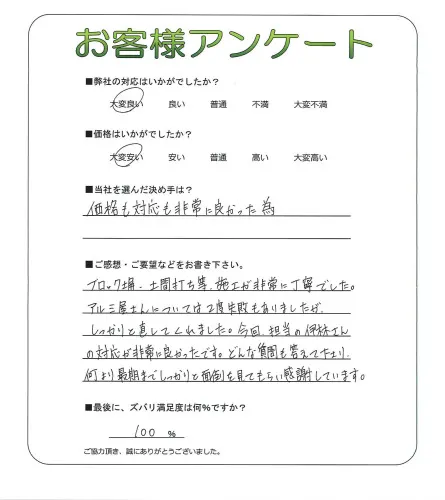 お客様アンケート
■弊社の対応はいかがでしたか?
大変良い 良い 普通 不満 大変不満
■価格はいかがでしたか?
大変安い 安い 普通 高い 大変高い
■当社を選んだ決め手は?
価格も対応も非常に良かった為
■ご感想・ご要望などをお書き下さい。
ブロック塀、土間打ち等、施工が非常に丁寧でした。
アルミ屋さんについては2度失敗もありましたが、
しっかりと直してくれました。今回、担当の伊林さん
の対応が非常に良かったです。どんな質問も答えて下さり、
何より最期までしっかりと面倒を見てもらい感謝しています。
■最後に、ズバリ満足度は何%ですか?
100 %
ご協力頂き、誠にありがとうございました。